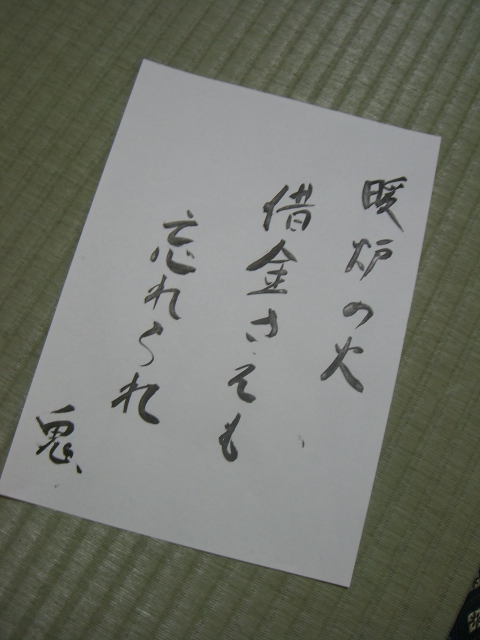 暖炉の火
借金さえも
忘れられ
鬼